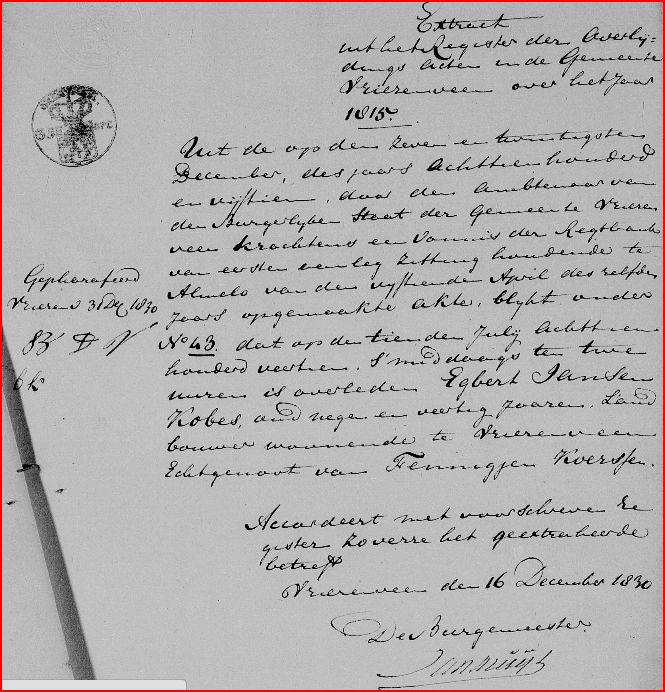 Extract
uit het Register der Overlij=
dings Acten in de Gemeente
Vriezenveen over het Jaar
1815.
Uit de op den zeven en twintigsten
December, des jaars Achttienhonderd
en vijftien, door den Ambtenaar van
den Burgerlyken Staat der Gemeente Vriezen
veen krachtens een Vonnis der Regtbank
van eersten aanleg zitting houdende te
Almelo van den vyftienden April deszelfden
Jaars opgemaakte akte, blykt onder
No 43. dat op den tienden July Achttien
honderd veertien. S'middaags ten twee
uuren is overleden Egbert Jansen
Kobes, oud negen en veertig jaaren, Land
bouwer woonende te Vriezenveen
Echtgenoot van Fenningjen Koersen.
Gepharafeerd
Vriezenv 31 Dec 1830
Accordeert met voorschreven Re
gister zoverre het geextraheerde
betreft
Vriezenveen den 16 December 1830
De Burgemeester.